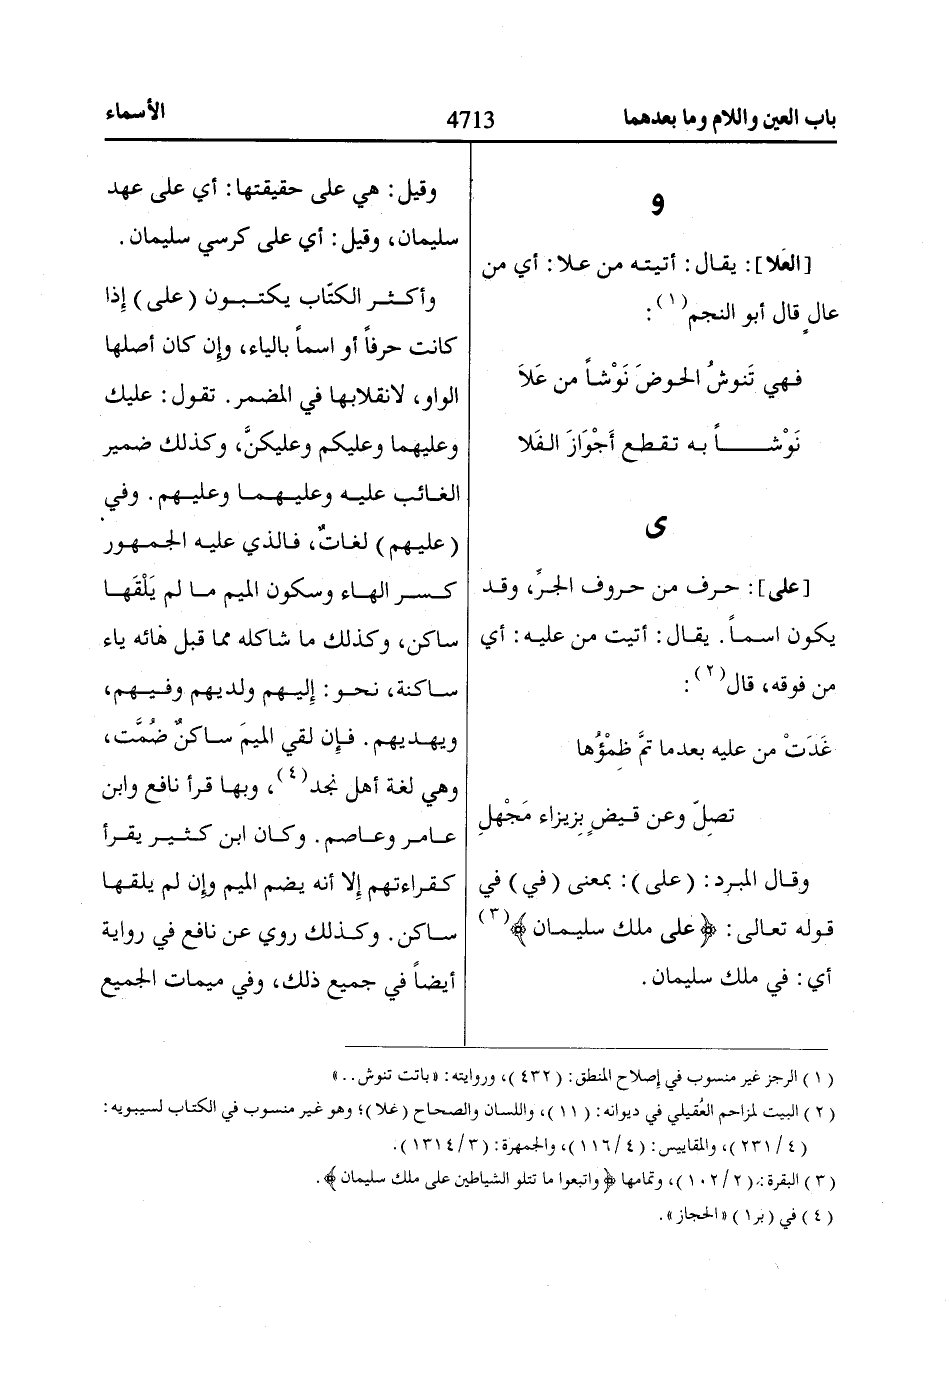 باب العين واللام وما بعدهما 4713 الأسماء
و
[العَلا]: يقال: أتيته من علا: أي من
عالٍ قال أبو النجم(١):
فهي تَنوشُ الحوضَ نَوْشاً من عَلاَ
نَوْشــــاً به تقطع أَجْوَازَ الفَلا
ى
[على]: حرف من حروف الجرِّ، وقد
يكون اسماً. يقال: أتيت من عليه: أي
من فوقه، قال(٢):
غَدَتْ من عليه بعدما تمَّ ظِمْؤُها
تصِلّ وعن قيضٍ بزيزاء مَجْهلِ
وقال المبرد: (على): بمعنى (في) في
قوله تعالى: ﴿على ملك سليمان﴾(٣)
أي: في ملك سليمان.
وقيل: هي على حقيقتها: أي على عهد
سليمان، وقيل: أي على كرسي سليمان.
وأكثر الكتّاب يكتبون (على) إذا
كانت حرفاً أو اسماً بالياء، وإن كان أصلها
الواو، لانقلابها في المضمر. تقول: عليك
وعليهما وعليكم وعليكنَّ، وكذلك ضمير
الغائب عليه وعليهما وعليهم. وفي
(عليهم) لغاتٌ، فالذي عليه الجمهور
كسر الهاء وسكون الميم ما لم يَلْقَها
ساكن، وكذلك ما شاكله مما قبل هائه ياء
ساكنة، نحو: إليهم ولديهم وفيهم،
ويهديهم. فإن لقي الميمَ ساكنٌ ضُمَّت،
وهي لغة أهل نجد(٤)، وبها قرأ نافع وابن
عامر وعاصم. وكان ابن كثير يقرأ
كقراءتهم إلا أنه يضم الميم وإن لم يلقها
ساكن. وكذلك روي عن نافع في رواية
أيضاً في جميع ذلك، وفي ميمات الجميع
(١) الرجز غير منسوب في إصلاح المنطق: (٤٣٢)، وروايته: «باتت تنوش..»
(٢) البيت لمزاحم العُقيلي في ديوانه: (١١)، واللسان والصحاح (غلا)؛ وهو غير منسوب في الكتاب لسيبويه:
(٤/٢٣١)، والمقاييس: (٤/١١٦)، والجمهرة: (٣/١٣١٤).
(٣) البقرة: (٢/١٠٢)، وتمامها ﴿واتبعوا ما تتلو الشياطين على ملك سليمان﴾.
(٤) في (بر١) «الحجاز».